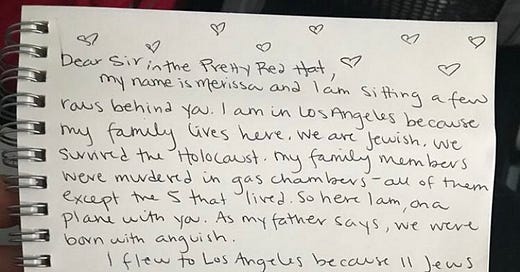 Dear Sir in the Pretty Red Hat,
my name is merissa and I am sitting a few
rows behind you. I am in Los Angeles because
my family lives here. We are Jewish. We
survived the Holocaust. My family members
were murdered in gas chambers - all of them
except the 5 that lived. So here I am, on a
plane with you. As my father says, we were
born with anguish.
I flew to Los Angeles because 11 Jews